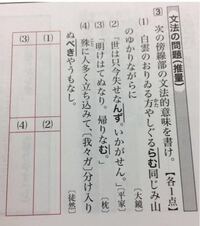 文法の問題(推量)
③ 次の傍線部の文法的意味を書け。【各1点】
(1) 白雲のおりゐる方やしぐるらむ同じみ山
のゆかりながらに 〔大鏡〕
(2) 「世は只今失せなんず。いかがせん。」〔平家〕
(3) 「明けはてぬなり。帰りなむ。」〔枕〕
(4) 殊に人多く立ち込みて、「我々ガ」分け入り
ぬべきやうもなし。 〔徒然〕
(1)
(2)
(3)
(4)